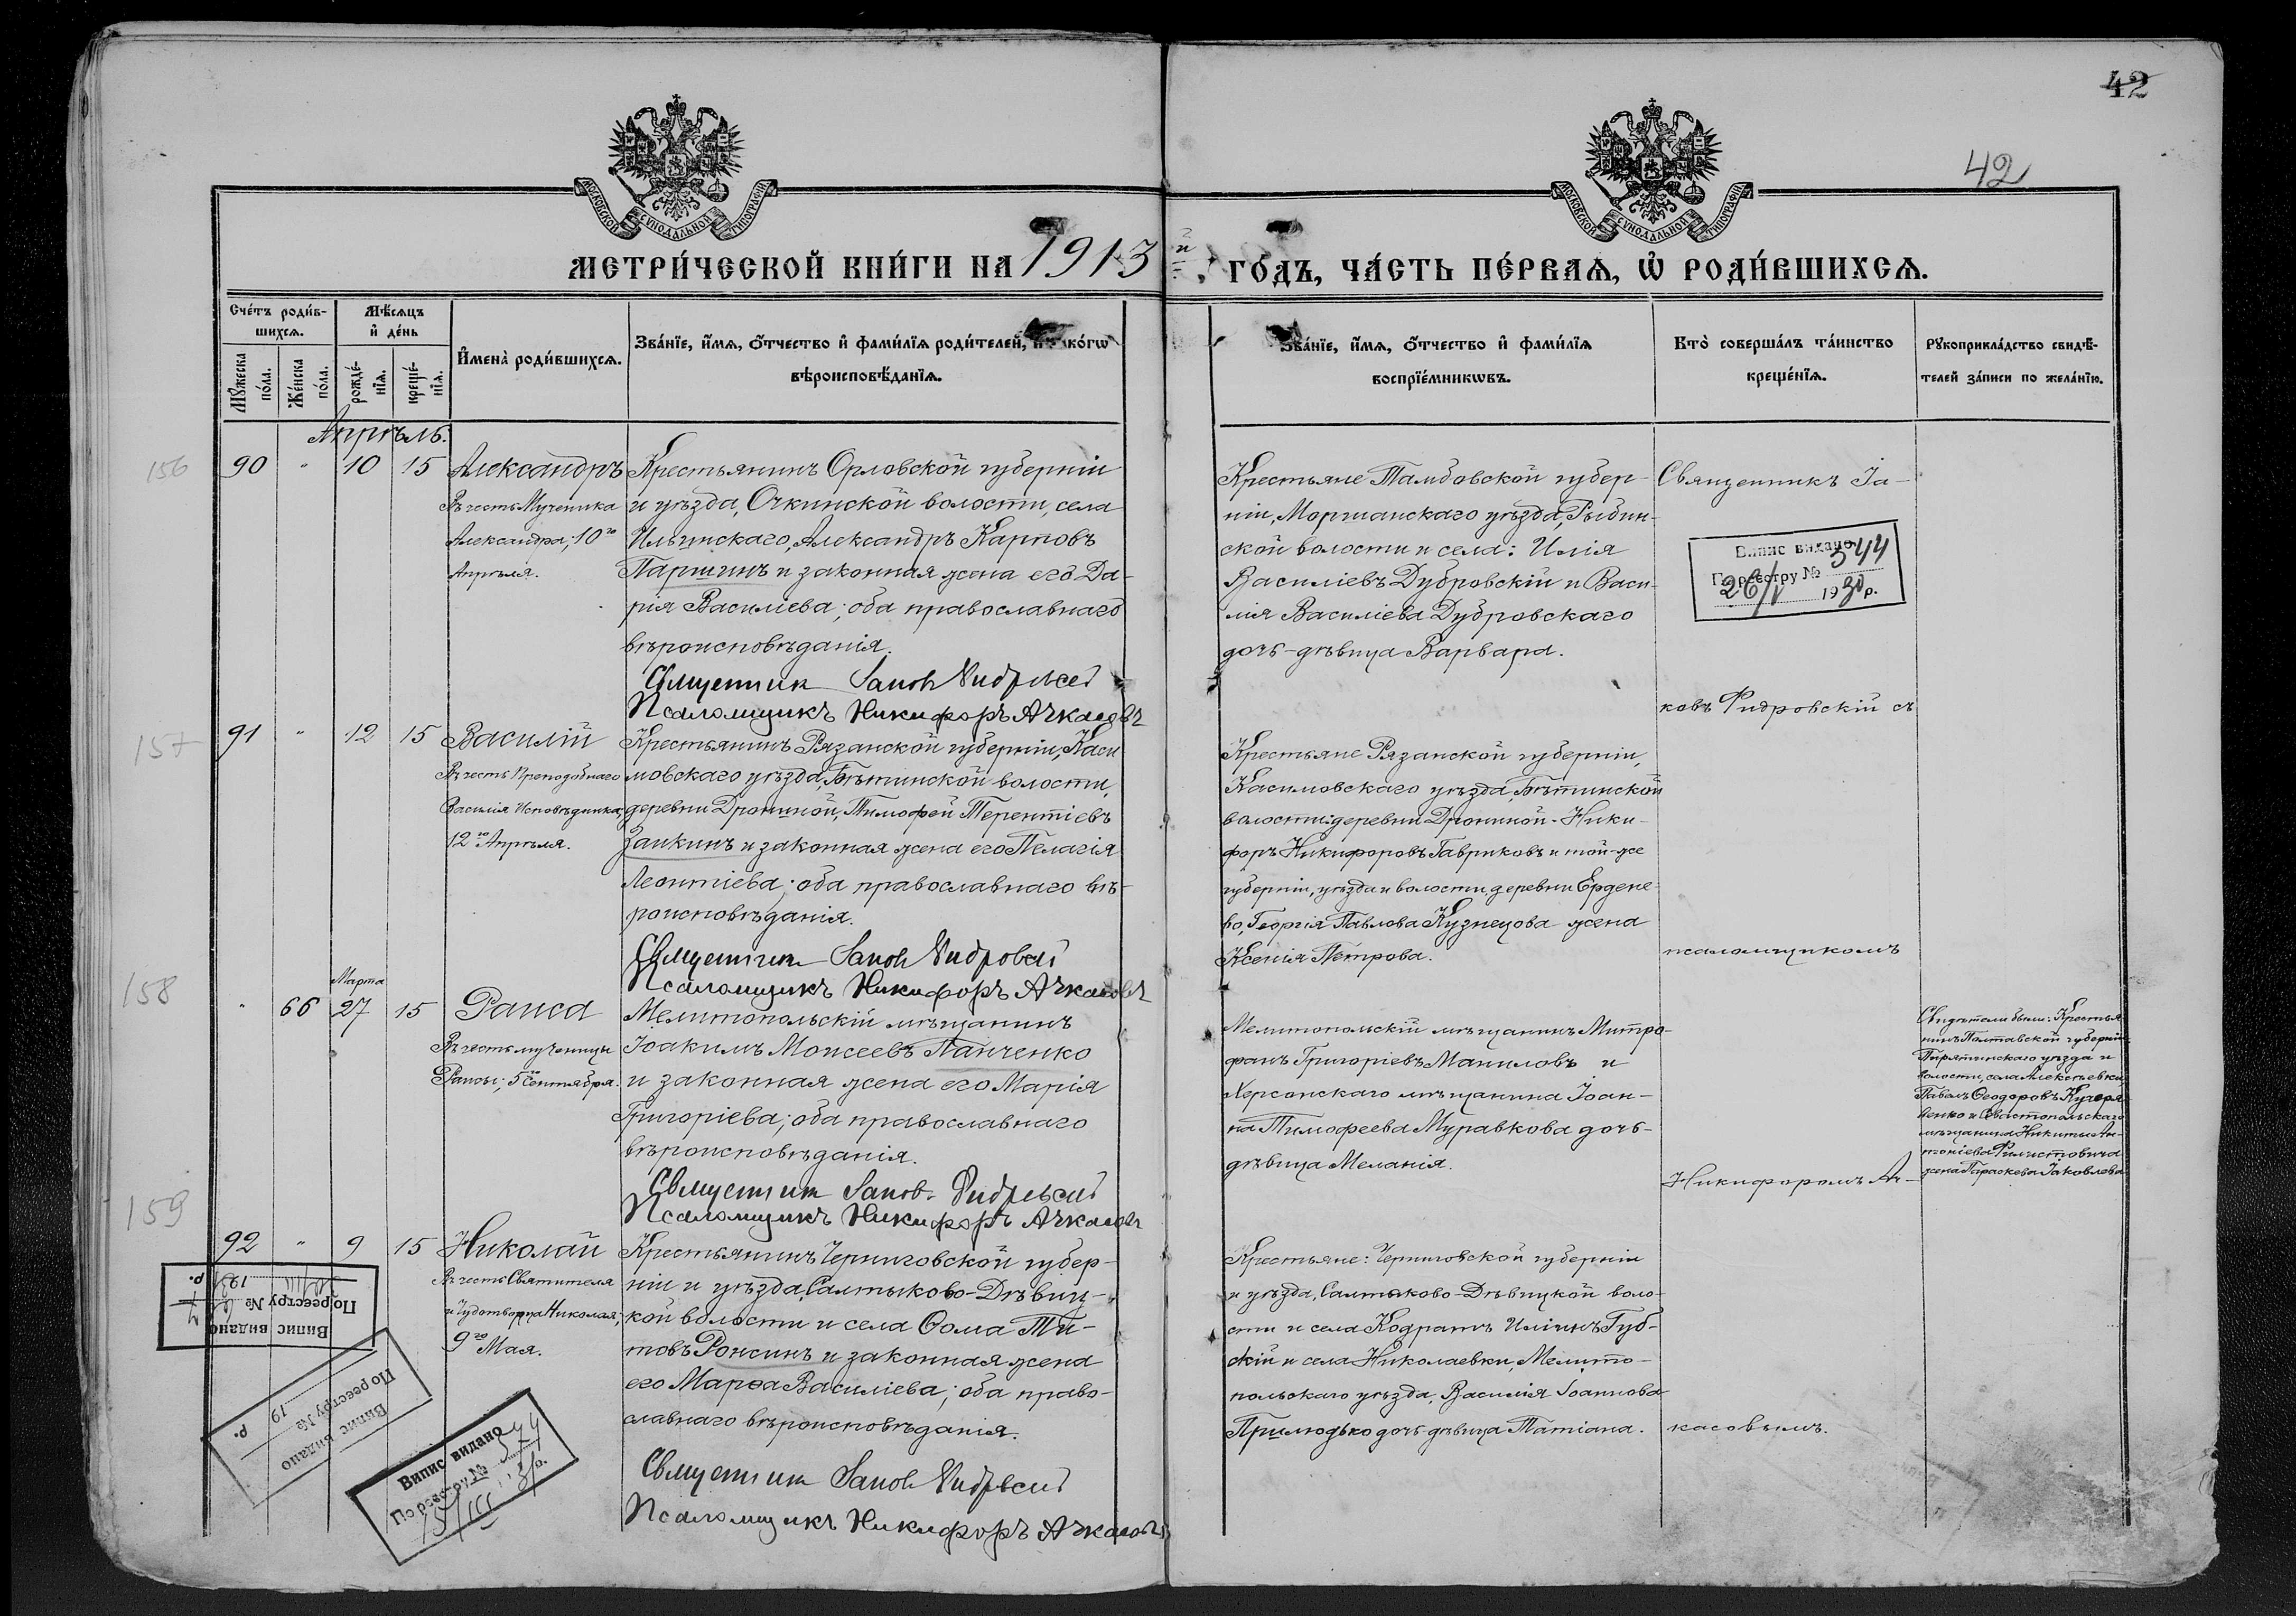 42
42
МОСКОВСКОЙ СѴНОДАЛЬНОЙ ТИПОГРАФІИ
МОСКОВСКОЙ СѴНОДАЛЬНОЙ ТИПОГРАФІИ
МЕТРИ́ЧЕСКОЙ КНИ́ГИ НА 1913 й ГО́ДЪ, ЧА́СТЬ ПЕ́РВАѦ, Ѡ РОДИ́ВШИХСѦ.
Сче́тъ роди́в-
шихсѧ.
Мꙋ́жеска
по́ла.
Же́нска
по́ла.
Мѣ́сѧцъ
и де́нь
рожде́-
нїѧ.
креще́-
нїѧ.
Имена̀ роди́вшихсѧ.
Зва́нїе, и́мѧ, о́тчество и фами́лїѧ роди́телей, и ко́гѡ
вѣроисповѣ́данїѧ.
Зва́нїе, и́мѧ, о́тчество и фами́лїѧ
воспрїе́мникѡвъ.
Кто̀ соверша́лъ та́инство
креще́нїѧ.
Рꙋкоприкла́дство свидѣ́-
телей за́писи по жела́нїю.
Апрѣль.
156
90 " 10 15
Александръ
Въ честь Мученика
Александра, 10го
Апрѣля.
Крестьянинъ Орловской губерніи
и уѣзда, Очкинской волости, села
Ильинскаго, Александръ Карповъ
Паршинъ и законная жена его Да-
рія Василіева; оба православнаго
вѣроисповѣданія.
Священник Іаков
Псаломщикъ Никифоръ Ачкасовъ
Крестьяне Тамбовской губер-
ніи, Моршанскаго уѣзда, Рыбин-
ской волости и села: Илія
Василіевъ Дубровскій и Васи-
лія Василіева Дубровскаго
дочь-дѣвица Варвара.
Священникъ Іа-
Випис видано
По реєстру № 544
26/V 1930 р.
ковъ Фидровскій съ
157
91 " 12 15
Василій
Въ честь Преподобнаго
Василія Исповѣдника,
12го Апрѣля.
Крестьянинъ Рязанской губерніи, Каси
мовскаго уѣзда, Бѣтинской волости,
деревни Дрониной, Тимофей Терентіевъ
Заикинъ и законная жена его Пелагія
Леонтіева; оба православнаго вѣ-
роисповѣданія.
Священник Іаков
Псаломщикъ Никифоръ Ачкасовъ
Крестьяне Рязанской губерніи,
Касимовскаго уѣзда, Бѣтинской
волости: деревни Дрониной - Ники-
форъ Никифоровъ Гавриковъ и той-же
губерніи, уѣзда и волости, деревни Ердене-
во, Георгія Павлова Кузнецова жена
Ксенія Петрова.
псаломщикомъ
158
Марта
" 66 27 15
Раиса
Въ честь мученицы
Раисы; 5го Сентября.
Мелитопольскій мѣщанинъ
Іоакимъ Моисеевъ Панченко
и законная жена его Марія
Григоріева; оба православнаго
вѣроисповѣданія.
Священник Іаков
Псаломщикъ Никифоръ Ачкасовъ
Мелитопольскій мѣщанинъ Митро-
фанъ Григоріевъ Манилов и
Херсонскаго мѣщанина Іоан-
на Тимофеева Муравкова дочь-
дѣвица Меланія.
Никифоромъ Ач-
Свидѣтели были: Крестья-
нинъ Полтавской губерніи
Пирятинскаго уѣзда и
волости, села Алексѣевки,
Павелъ Ѳеодоровъ Кучеря-
венко и Севастопольскаго
мѣщанина Никиты Ан-
тоніева Филистовича
жена Параскева Іаковлева
159
92 " 9 15
Николай
Въ честь Святителя
и Чудотворца Николая,
9го Мая.
Крестьянинъ Черниговской губер-
ніи и уѣзда, Салтыково-Дѣвиц-
кой волости и села Ѳома Ти-
товъ Ронсинъ и законная жена
его Марѳа Василіева; оба право-
славнаго вѣроисповѣданія.
Священник Іаков
Псаломщикъ Никифоръ Ачкасовъ
Крестьяне: Черниговской губерніи
и уѣзда, Салтыково-Дѣвицкой воло-
сти и села Кодратъ Иліинъ Губ-
скій и села Николаевки, Мелито-
польскаго уѣзда, Василія Іоаннова
Прилюдько дочь-дѣвица Татіана.
касовымъ.
Випис видано
По реєстру №
19 р.
Випис видано
По реєстру №
19 р.
Випис видано
По реєстру № 574
15/III